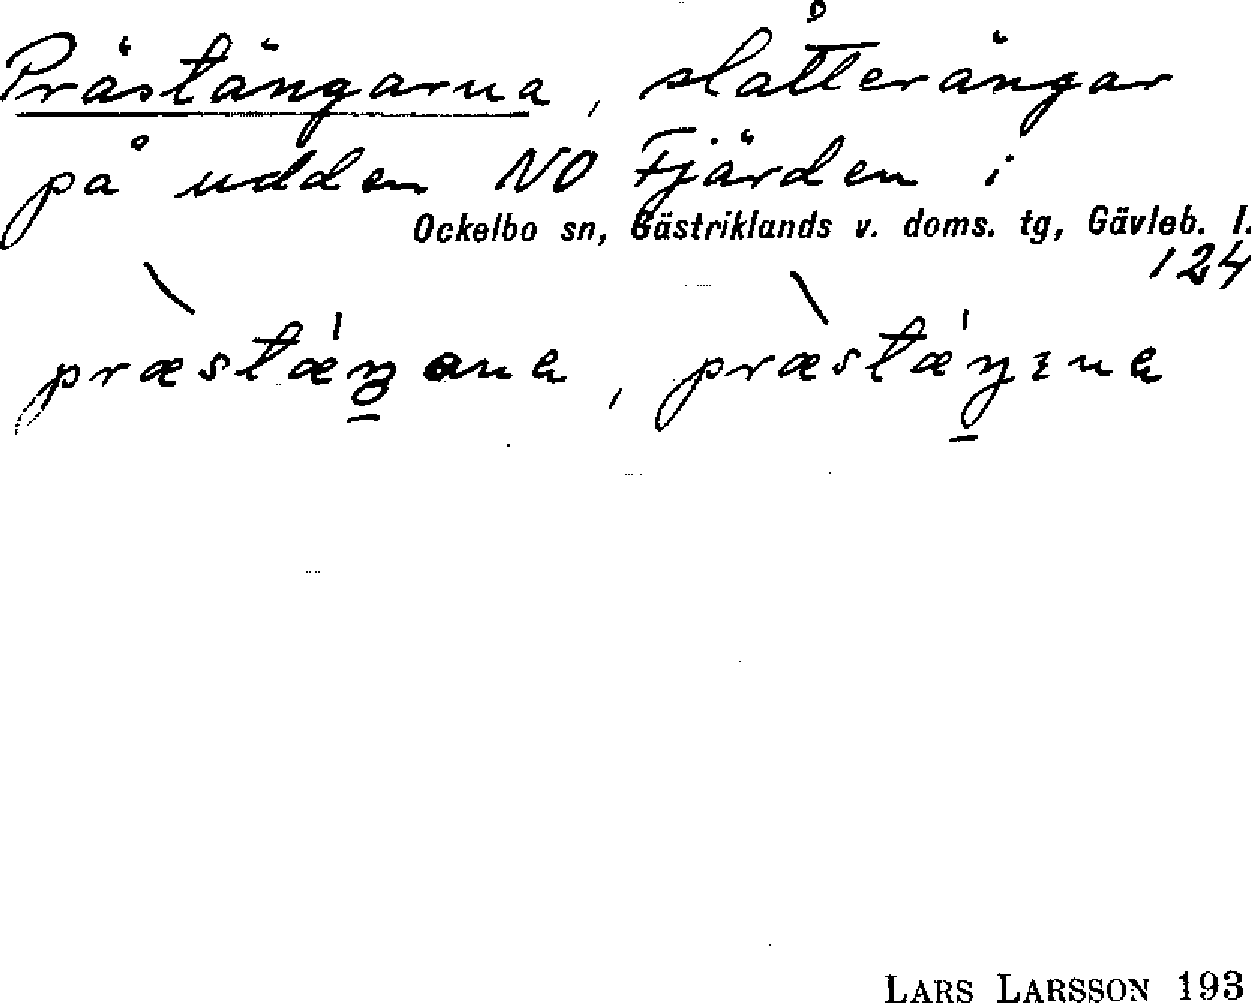 Prästängarna, slåtterängar
på udden NO Fjärden i
Ockelbo sn, Gästriklands v. doms. tg, Gävleb. l.
124
præstæŋana, præstæŋɜna
LARS LARSSON 193